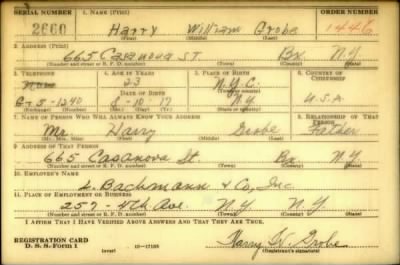 SERIAL NUMBER 1. NAME (Print) ORDER NUMBER
2660 Harry William Grobe 1446
(First) (Middle) (Last)
2. ADDRESS (Print)
665 Casanova ST. Bx N.Y.
(Number and street or R. F. D. number) (Town) (County) (State)
3. TELEPHONE 4. AGE IN YEARS 5. PLACE OF BIRTH 6. COUNTRY OF CITIZENSHIP
23 N.Y.C.
DATE OF BIRTH (Town or county)
5-1240 8-10-17 N.Y. U.S.A.
(Exchange) (Number) (Mo.) (Day) (Yr.) (State or country)
7. NAME OF PERSON WHO WILL ALWAYS KNOW YOUR ADDRESS 8. RELATIONSHIP OF THAT PERSON
Mr. Harry Grobe Father
(Mr., Mrs., Miss) (First) (Middle) (Last)
9. ADDRESS OF THAT PERSON
665 Casanova St. Bx N.Y.
(Number and street or R. F. D. number) (Town) (County) (State)
10. EMPLOYER'S NAME
L. Bachmann & Co, Inc.
11. PLACE OF EMPLOYMENT OR BUSINESS
257 - 4th Ave. N.Y. N.Y.
(Number and street or R. F. D. number) (Town) (County) (State)
I AFFIRM THAT I HAVE VERIFIED ABOVE ANSWERS AND THAT THEY ARE TRUE.
REGISTRATION CARD
D. S. S. Form 1
16-17105
Harry W. Grobe
(Registrant's signature)